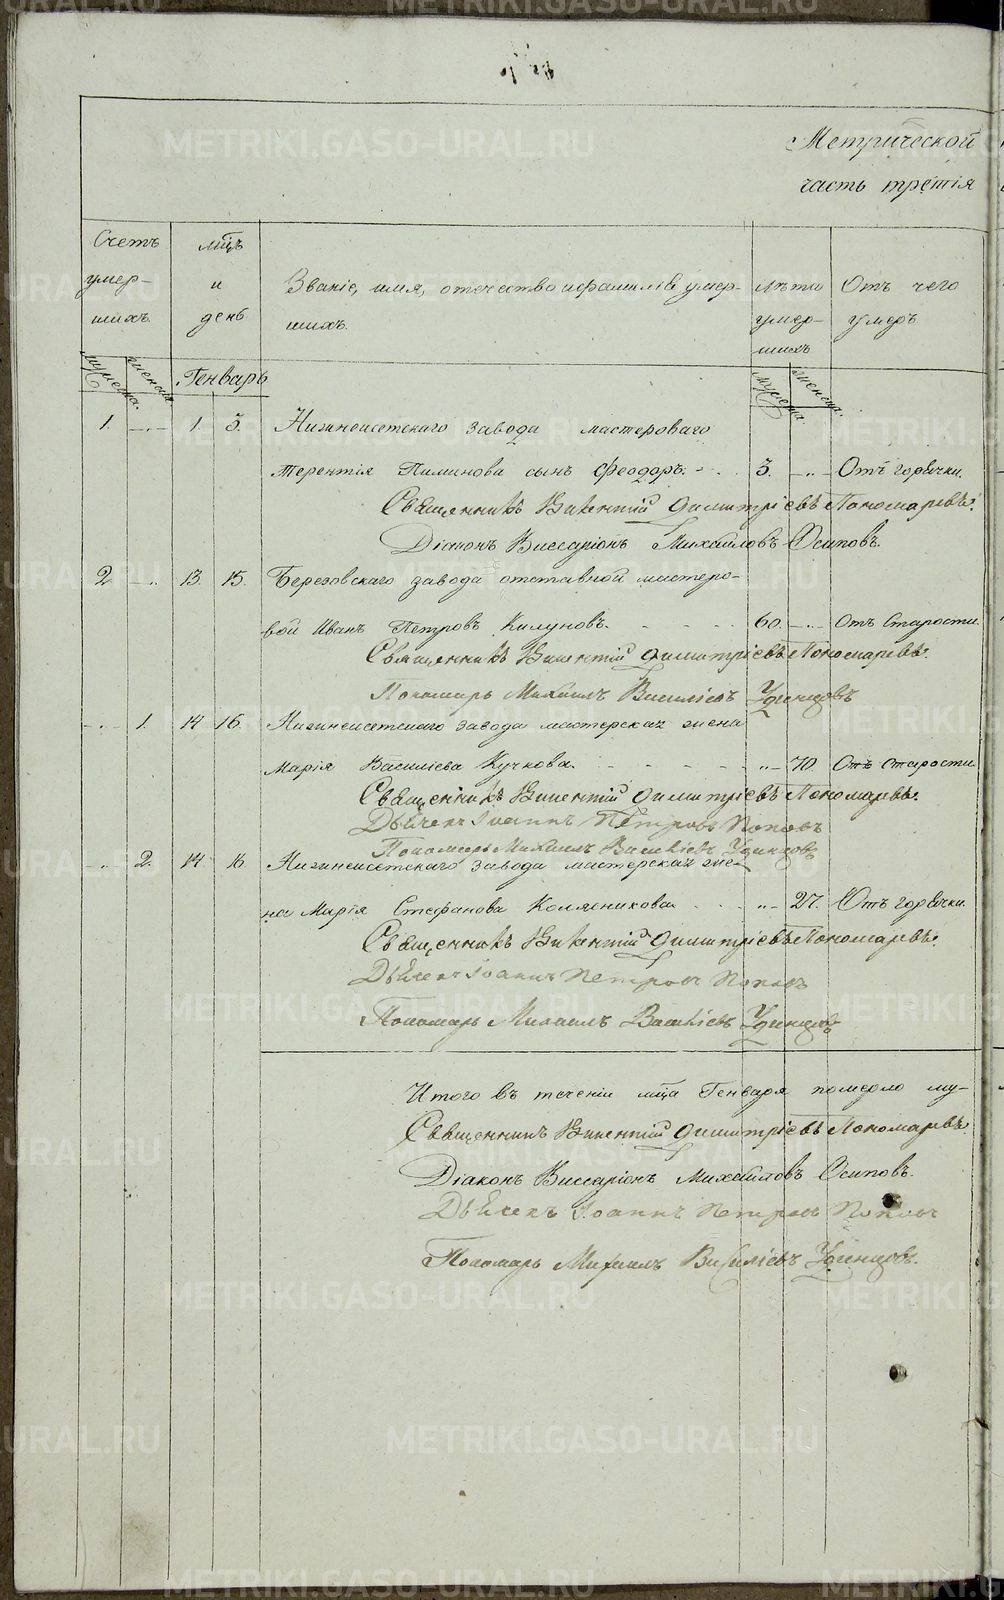 METRIKI.GASO-URAL.RU
Метрической
часть третія
Счетъ умер- шихъ.
мужеска. женска.
мцъ и день
Генварь
Званіе, имя, отечество и фамиліи умер- шихъ.
лѣта умер- шихъ
мужеска. женска.
Отъ чего умеръ
1. —„— 1 3. Нижнеисетскаго завода мастероваго
Терентія Пиминова сынъ Феодоръ. 3. —„ Отъ горячки.
Священникъ Викентій Димитріевъ Пономаревъ.
Діаконъ Виссаріонъ Михайловъ Осиповъ.
2 —„ 13. 15. Березовскаго завода отставной мастеро-
вой Иванъ Петровъ Килуновъ. 60. —„ Отъ Старости.
Священникъ Викентій Димитріевъ Пономаревъ.
Пономарь Михаилъ Василіевъ Удинцовъ
—„ 1. 14 16. Нижнеисетскаго завода мастерская жена
Марія Василіева Кучкова. „— 70 Отъ Старости
Священникъ Викентій Димитріевъ Пономаревъ.
Дьячекъ Іоаннъ Петровъ Поповъ
Пономарь Михаилъ Василіевъ Удинцовъ
„ 2. 14 16 Нижнеисетскаго завода мастерская же-
на Марія Стефанова Колясникова „— 27. Отъ горячки.
Священникъ Викентій Димитріевъ Пономаревъ.
Дьячекъ Іоаннъ Петровъ Поповъ
Пономарь Михаилъ Василіевъ Удинцовъ
Итого въ теченіи мца Генваря померло му-
Священникъ Викентій Димитріевъ Пономаревъ.
Діаконъ Виссаріонъ Михайловъ Осиповъ.
Дьячекъ Іоаннъ Петровъ Поповъ
Пономарь Михаилъ Василіевъ Удинцовъ.